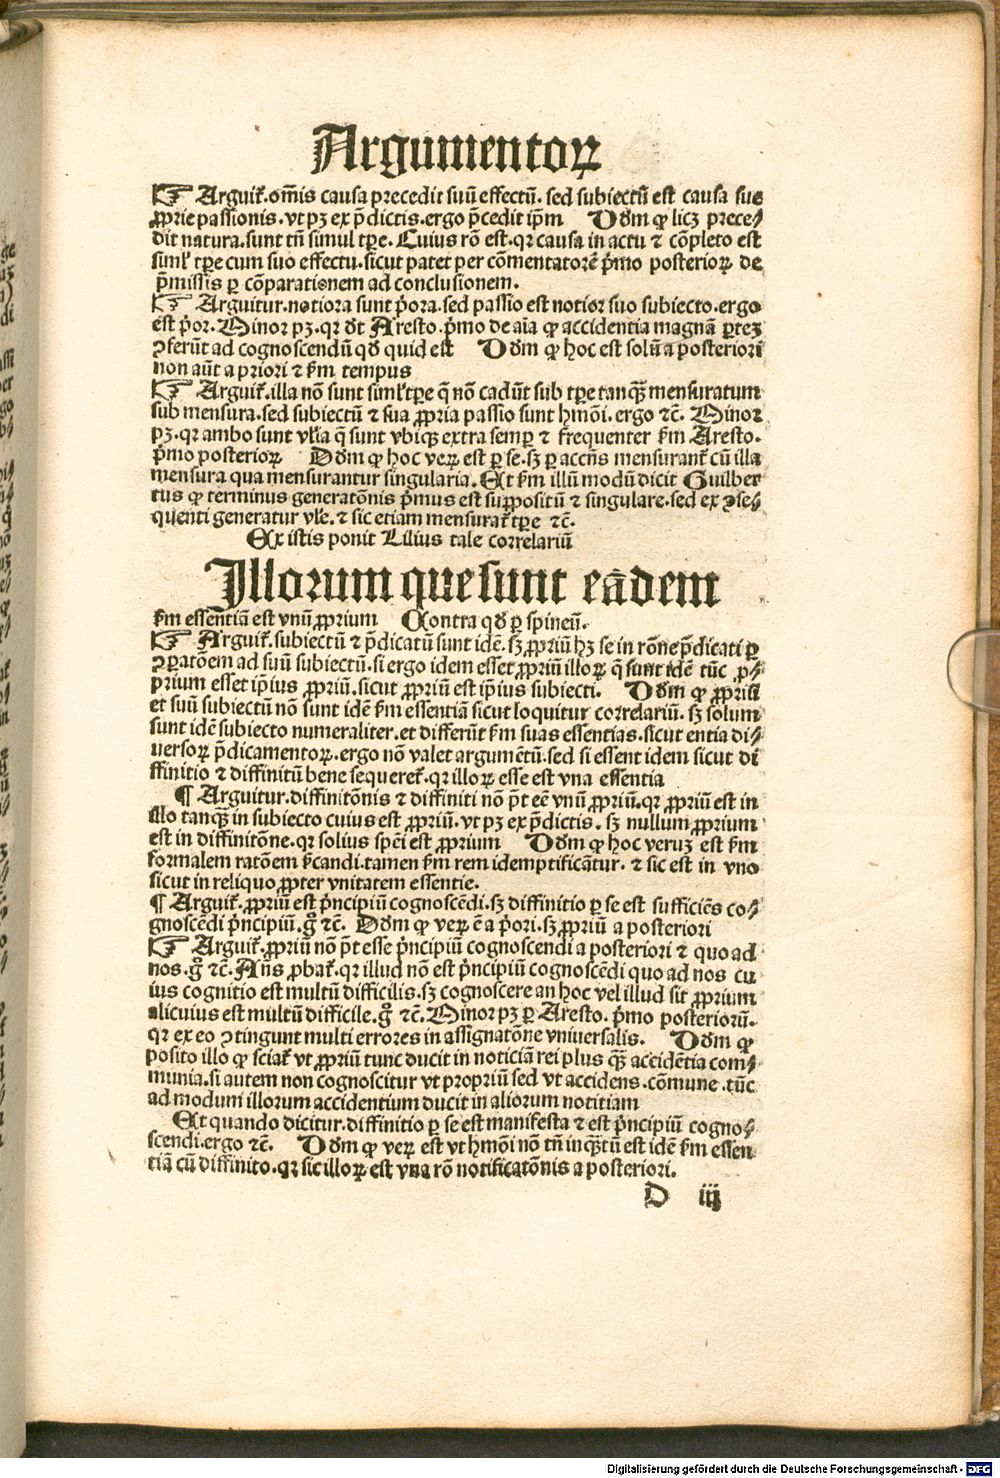 Argumentoꝝ
☞ Arguit᷑.om̄is causa precedit suū effectū. sed subiectū est causa sue
ꝓprie passionis.vt pꝫ ex p̄dictis.ergo p̄cedit ip̄m Dd̄m ꝙ licꝫ prece⸗
dit natura.sunt tn̄ simul tꝑe. Cuius rō est.qꝛ causa in actu ⁊ cōpleto est
siml' tꝑe cum suo effectu.sicut patet per cōmentatorē p̄mo posterioꝝ de
p̄missis ꝑ cōparationem ad conclusionem.
☞ Arguitur.notiora sunt p̄ora.sed passio est notior suo subiecto.ergo
est p̄or.Minor pꝫ.qꝛ dt̄ Aresto.p̄mo de aīa ꝙ accidentia magnā ꝑteꝫ
ꝯferūt ad cognoscendū qd̄ quid est Dd̄m ꝙ hoc est solū a posteriori
non aūt a priori ⁊ s̄m tempus
☞ Arguit᷑.illa nō sunt siml' tꝑe q̄ nō cadūt sub tꝑe tanqꝫ̄ mensuratum
sub mensura.sed subiectū ⁊ sua ꝓpria passio sunt hmōi.ergo ⁊c̄. Minor
pꝫ.qꝛ ambo sunt vl'ia q̄ sunt vbiqꝫ extra semꝑ ⁊ frequenter s̄m Aresto.
p̄mo posterioꝝ Dd̄m ꝙ hoc veꝝ est ꝑ se.sꝫ ꝑ accn̄s mensurant᷑ cū illa
mensura qua mensurantur singularia.Et s̄m illū modū dicit Guilher
tus ꝙ terminus generatōnis p̄mus est suppositū ⁊ singulare.sed ex ꝯse⸗
quenti generatur vl'e.⁊ sic etiam mensurat᷑ tꝑe ⁊c̄.
Ex istis ponit Lilius tale correlariū
Illorum que sunt eādem
s̄m essentiā est vnū ꝓprium Contra qd̄ ꝑ spineū.
☞ Arguit᷑.subiectū ⁊ p̄dicatū sunt idē.sꝫ ꝓpriū hꝫ se in rōne p̄dicati ꝑ
ꝯꝑatōem ad suū subiectū.si ergo idem esset ꝓpriū illoꝝ q̄ sunt idē tūc ꝓ⸗
prium esset ip̄ius ꝓpriū.sicut ꝓpriū est ip̄ius subiecti. Dd̄m ꝙ ꝓpriū
et suū subiectū nō sunt idē s̄m essentiā sicut loquitur correlariū.sꝫ solum
sunt idē subiecto numeraliter.et differūt s̄m suas essentias.sicut entia di⸗
uersoꝝ p̄dicamentoꝝ.ergo nō valet argumētū.sed si essent idem sicut di
ffinitio ⁊ diffinitū bene sequeret᷑.qꝛ illoꝝ esse est vna essentia
¶ Arguitur.diffinitōnis ⁊ diffiniti nō p̄t eē vnū ꝓpriū.qꝛ ꝓpriū est in
illo tanqꝫ̄ in subiecto cuius est ꝓpriū.vt pꝫ ex p̄dictis.sꝫ nullum ꝓprium
est in diffinitōne.qꝛ solius spēi est ꝓprium Dd̄m ꝙ hoc veruꝫ est s̄m
formalem ratōem s̄candi.tamen s̄m rem idemptificātur.⁊ sic est in vno
sicut in reliquo ꝓpter vnitatem essentie.
¶ Arguit᷑.ꝓpriū est p̄ncipiū cognoscēdi.sꝫ diffinitio ꝑ se est sufficiēs co⸗
gnoscēdi p̄ncipiū.gͦ ⁊c̄. Dd̄m ꝙ veꝝ ē a p̄ori.sꝫ ꝓpriū a posteriori
☞ Arguit᷑.ꝓpriū nō p̄t esse p̄ncipiū cognoscendi a posteriori ⁊ quo ad
nos.gͦ ⁊c̄.An̄s ꝓbat᷑.qꝛ illud nō est p̄ncipiū cognoscēdi quo ad nos cu
ius cognitio est multū difficilis.sꝫ cognoscere an hoc vel illud sit ꝓprium
alicuius est multū difficile.gͦ ⁊c̄.Minor pꝫ ꝑ Aresto. p̄mo posteriorū.
qꝛ ex eo ꝯtingunt multi errores in assignatōne vniuersalis. Dd̄m ꝙ
posito illo ꝙ sciat᷑ vt ꝓpriū tunc ducit in noticiā rei plus qꝫ̄ accidētia com⸗
munia.si autem non cognoscitur vt propriū sed vt accidens.cōmune.tūc
ad modum illorum accidentium ducit in aliorum notitiam
Et quando dicitur.diffinitio ꝑ se est manifesta ⁊ est p̄ncipiū cogno⸗
scendi.ergo ⁊c̄. Dd̄m ꝙ veꝝ est vt hmōi nō tn̄ inqꝫ̄tū est idē s̄m essen
tiā cū diffinito.qꝛ sic illoꝝ est vna rō notificatōnis a posteriori.
D iij
Digitalisierung gefördert durch die Deutsche Forschungsgemeinschaft - DFG